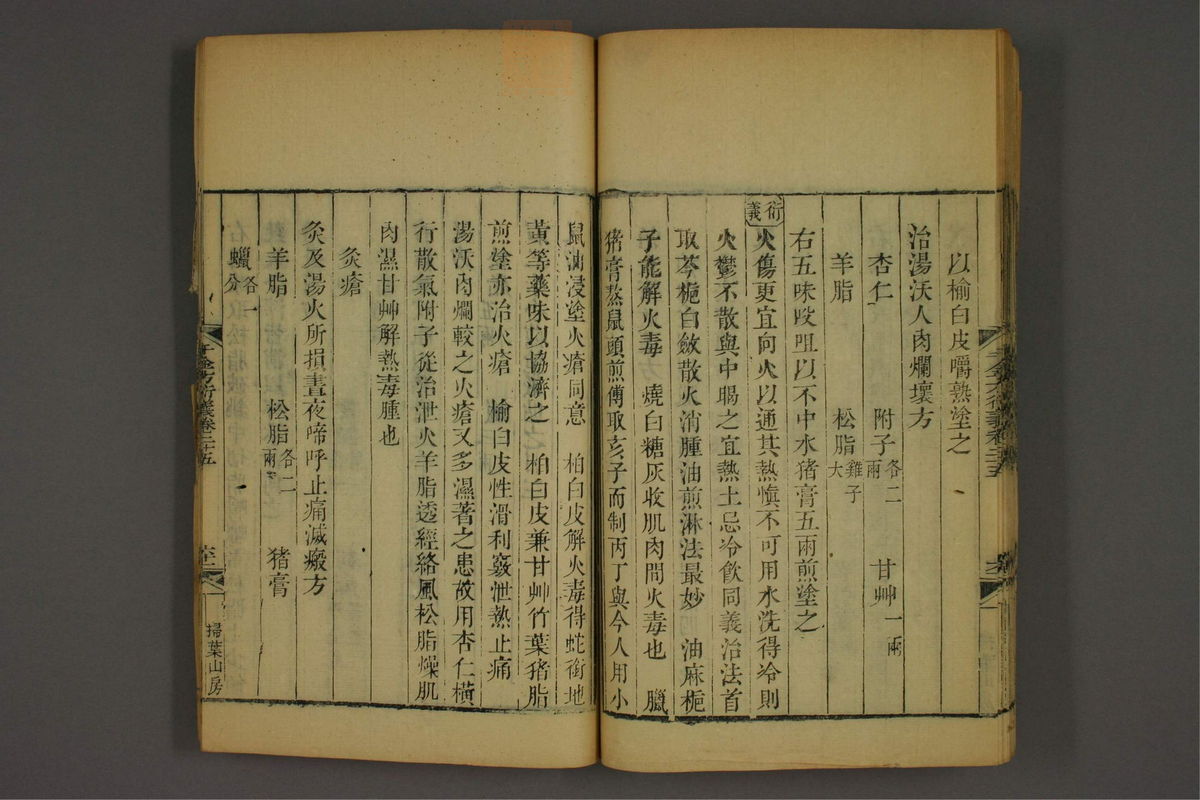 以榆白皮嚼熟塗之
治湯沃人肉爛壞方
杏仁 附子各二兩 甘艸一兩
羊脂 松脂雞子大
右五味㕮咀以不中水猪膏五兩煎塗之
衍義
火傷更宜向火以通其熱愼不可用水洗得冷則
火鬱不散與中暍之宜熱土忌冷飲同義治法首
取芩梔白斂散火消腫油煎淋法最妙 油麻梔
子能解火毒 燒白糖灰收肌肉間火毒也 臘
猪膏熬鼠頭煎傅取亥子而制丙丁與今人用小
鼠油浸塗火瘡同意 柏白皮解火毒得蛇銜地
黃等藥味以協濟之 柏白皮兼甘艸竹葉猪脂
煎塗亦治火瘡 榆白皮性滑利竅泄熱止痛
湯沃肉爛較之火瘡又多濕著之患故用杏仁橫
行散氣附子從治泄火羊脂透經絡風松脂燥肌
肉濕甘艸解熱毒腫也
灸瘡
灸及湯火所損晝夜啼呼止痛滅瘢方
羊脂 松脂各二兩 猪膏
蠟各一分
千金方衍義卷二十五
掃葉山房